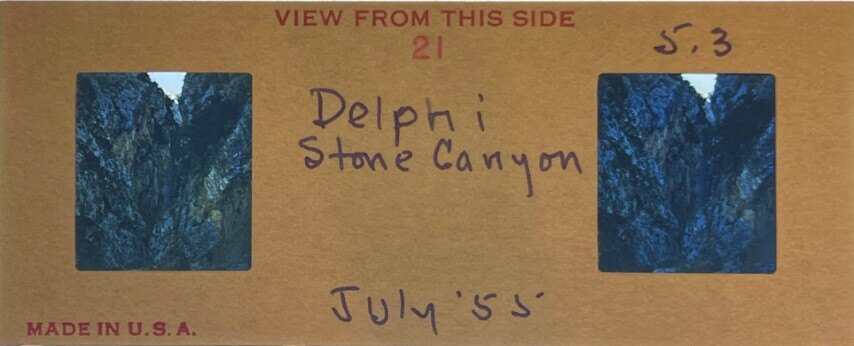 VIEW FROM THIS SIDE
21
5.3
Delphi
Stone Canyon
July '55
MADE IN U.S.A.